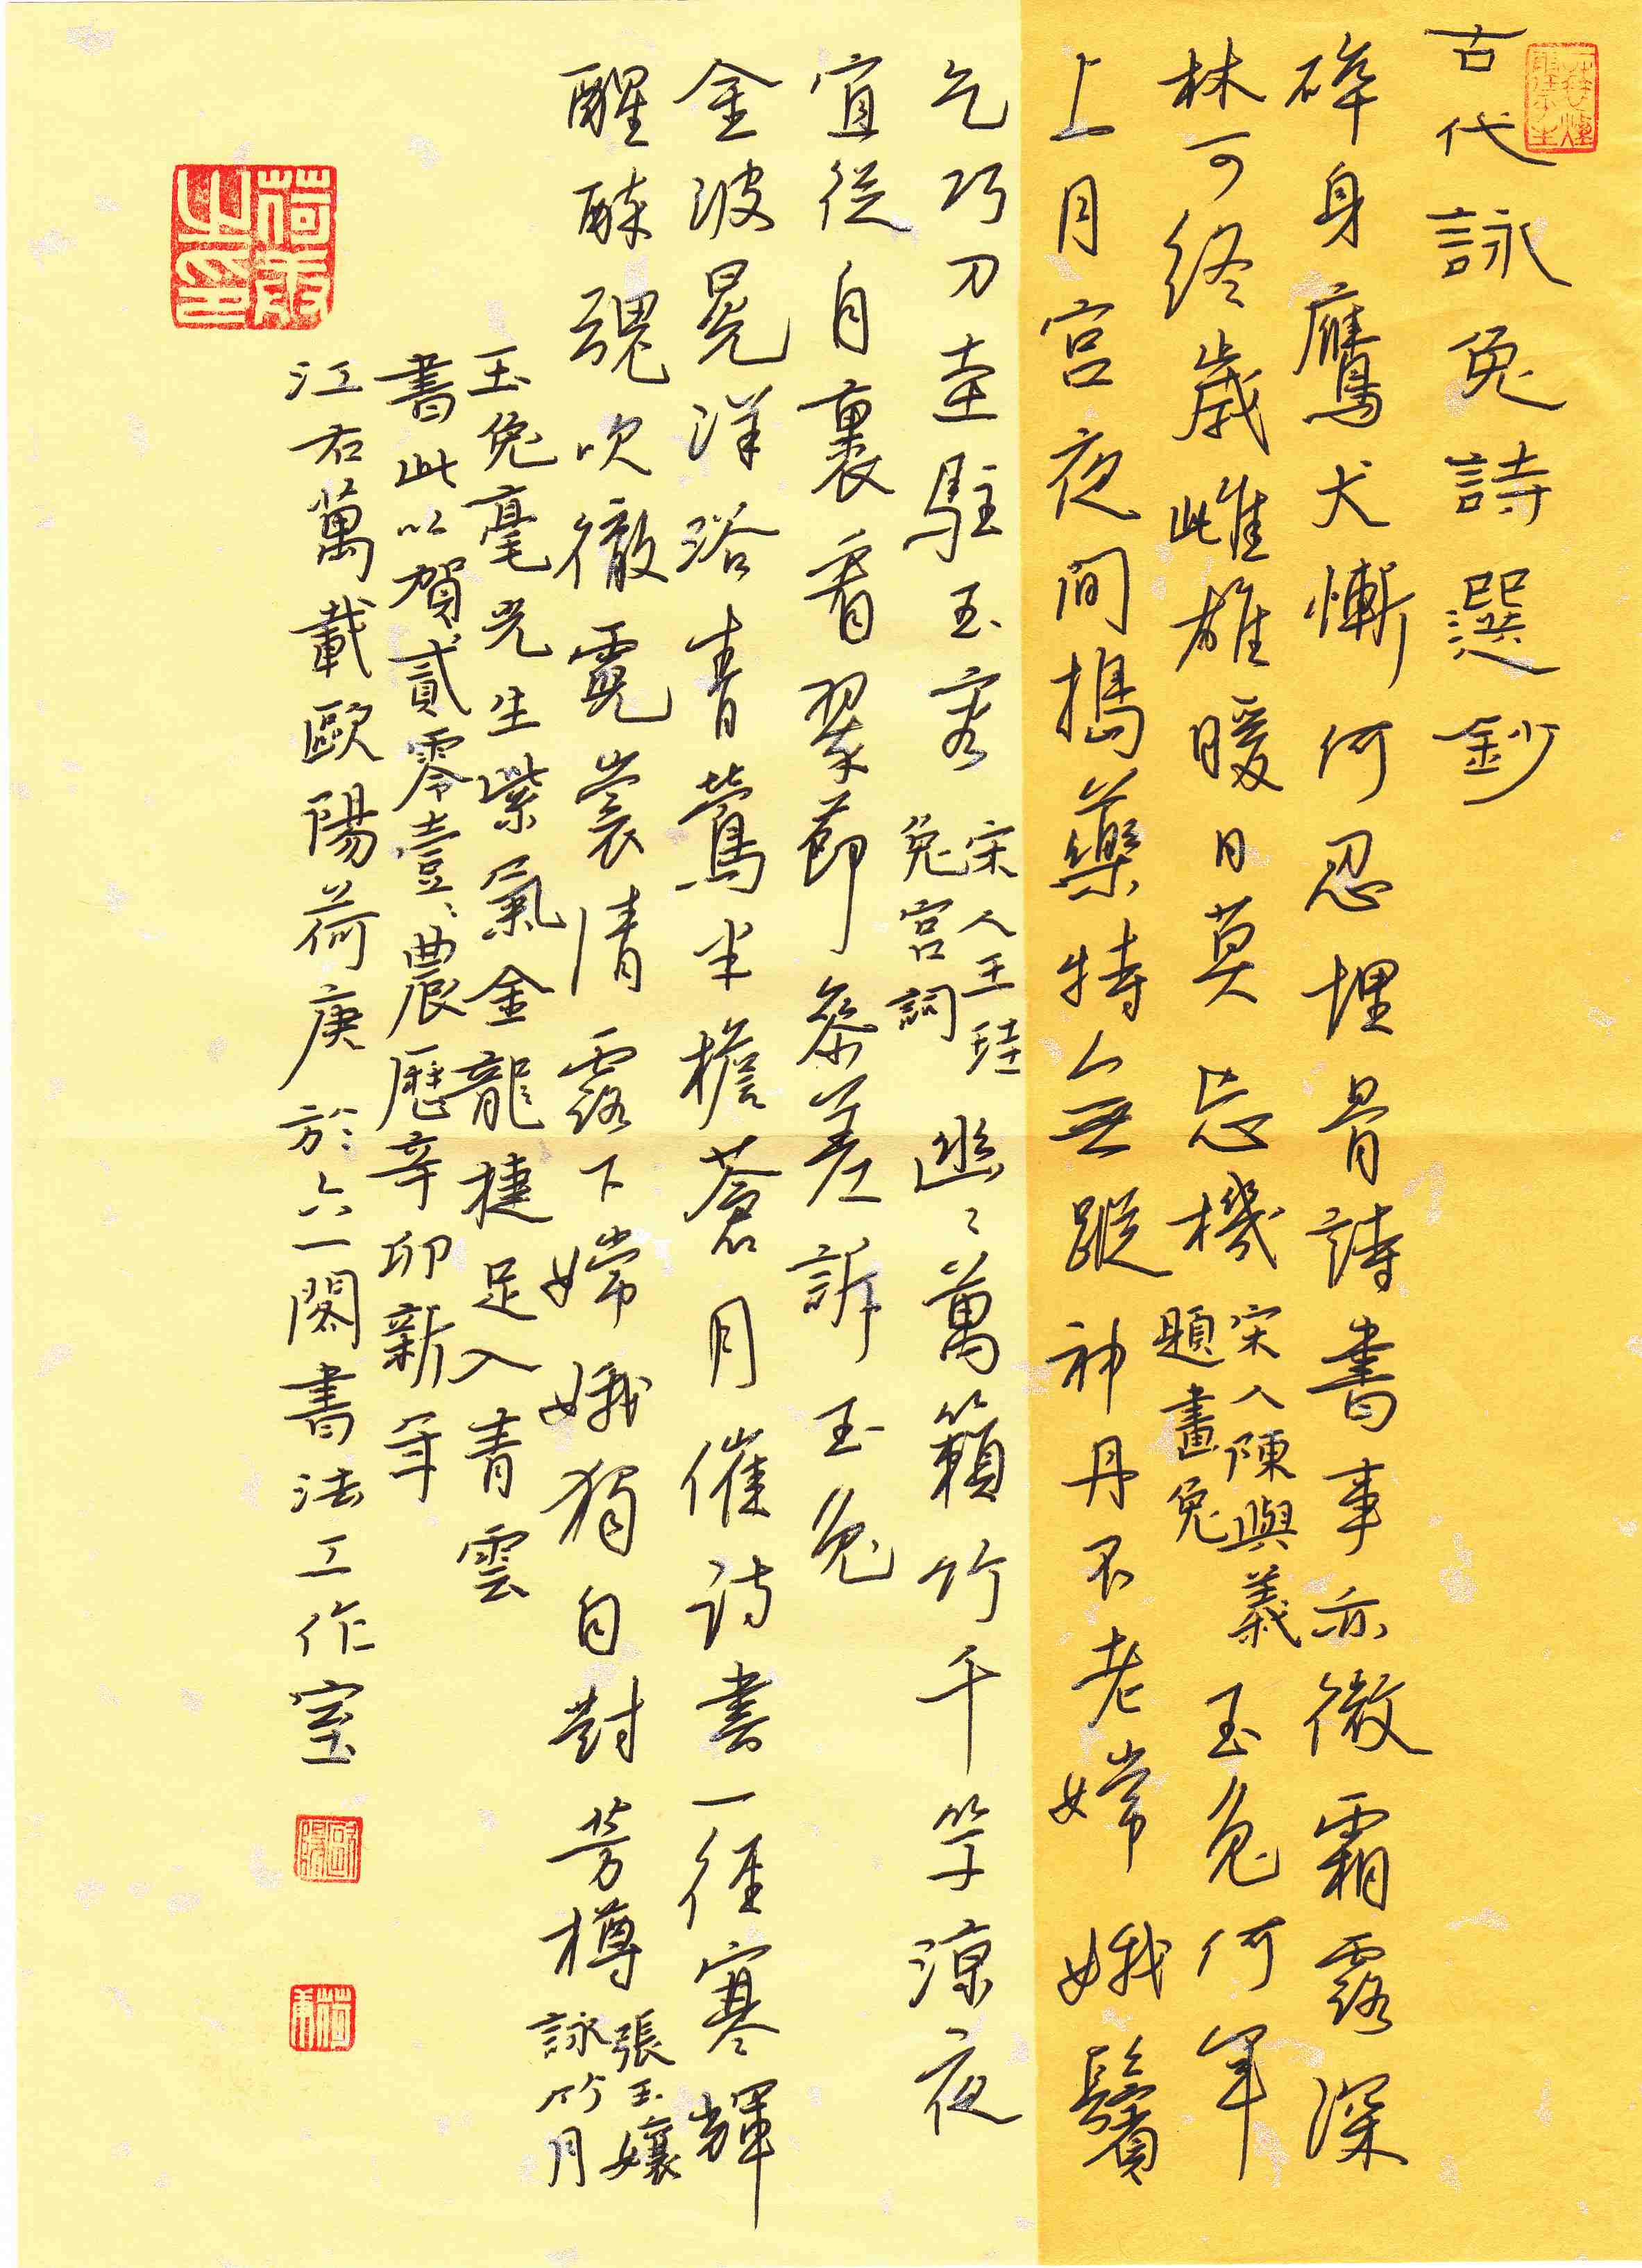 古代詠兔詩選鈔
碎身鷹犬慚何忍埋骨詩書事亦微霜露深
林可終歲雌雄暖日莫忘機
宋人陳與義
題畫兔
玉兔何年
上月宮夜間搗藥特無蹤神丹不老嫦娥鬢
乞巧刀圭駐玉容
宋人王珪
兔宮詞
幽幽萬籟竹千竿涼夜
宜從自裏看翠節參差訴玉兔
金波晃漾浴青鸞半檐蒼月催詩書一徑寒輝
醒醉魂吹徹霓裳情露下嫦娥獨自對芳樽
張玉孃
詠竹月
玉兔毫光生紫氣金龍捷足入青雲
書此以賀貳零壹壹農歷辛卯新年
江右萬載歐陽荷庚於六一閣書法工作室
荷庚之印